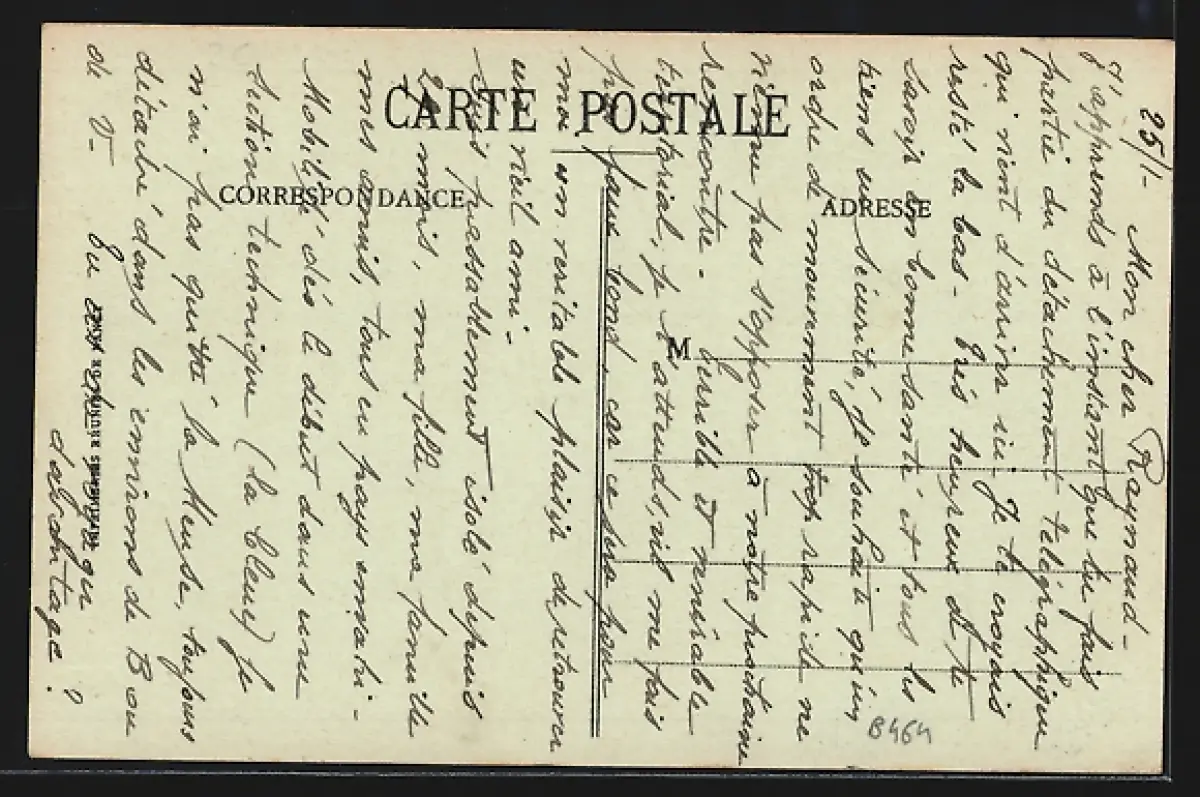 CARTE POSTALE
CORRESPONDANCE
ADRESSE
M
25/1-
Mon cher Raymond -
J'apprends à l'instant que tu fais
partie du détachement télégraphique
qui vient d'arriver ici. Je te croyais
resté là bas - Très heureux de te
savoir en bonne santé et tous les
tiens en sécurité, je souhaite qu'un
ordre de mouvement trop rapide ne
vienne pas s'opposer à notre prochaine
rencontre - Terrible et vénérable
territorial, je t'attends, vis me fais
pas faux bond, car ce sera pour
moi un véritable plaisir de retrouver
un vieil ami -
Je suis passablement isolé depuis
24 mois, ma fille, ma famille
mes amis, tous en pays envahi -
Mobilisé dès le début dans une
section technique (la bleue) je
n'ai pas quitté la Meuse, toujours
détaché dans les environs de B ou
de V-
davantage?
B464